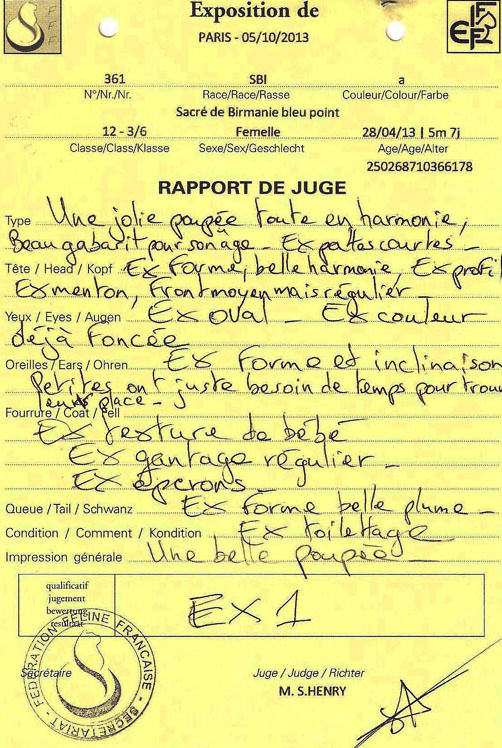 Exposition de
PARIS - 05/10/2013
FFF
FIFe
361 SBI a
N°/Nr./Nr. Race/Race/Rasse Couleur/Colour/Farbe
Sacré de Birmanie bleu point
12 - 3/6 Femelle 28/04/13 | 5m 7j
Classe/Class/Klasse Sexe/Sex/Geschlecht Age/Age/Alter
250268710366178
RAPPORT DE JUGE
Type Une jolie poupée toute en harmonie,
Beau gabarit pour son âge - Ex pattes courtes -
Tête / Head / Kopf Ex Forme, belle harmonie, Ex profil
Ex menton, Front moyen mais régulier -
Yeux / Eyes / Augen Ex oval - Ex couleur
déjà foncée
Oreilles / Ears / Ohren Ex Forme et inclinaison
Petites ont juste besoin de temps pour trouv
leur place -
Fourrure / Coat / Fell
Ex texture de bébé
Ex gantage régulier -
Ex éperons -
Queue / Tail / Schwanz Ex forme belle plume -
Condition / Comment / Kondition Ex toilettage
Impression générale Une belle poupée -
qualificatif
jugement
bewertung
resultat
EX 1
FEDERATION FÉLINE FRANÇAISE
SECRETARIAT
Secrétaire Juge / Judge / Richter
M. S.HENRY